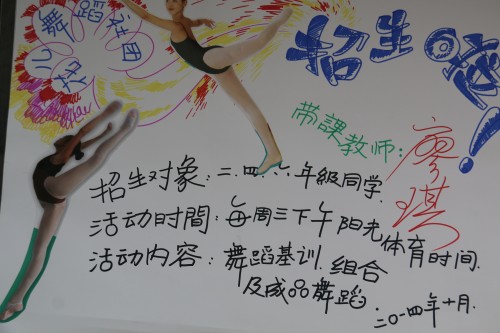 心蕊舞蹈社团
招生啦!
带課教师:廖琪
招生对象:二.四.六.年級同学.
活动时間:每周三下午阳光体育时间.
活动内容:舞蹈基训.組合
及成品舞蹈.
二〇一四年十月.